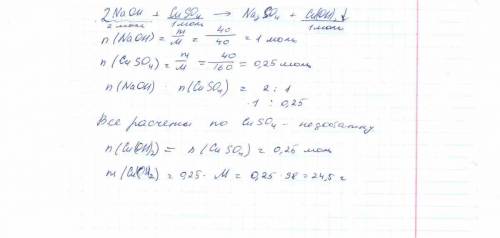 2NaOH + CuSO₄ → Na₂SO₄ + Cu(OH)₂↓
2 моль 1 моль 1 моль
n (NaOH) = m/M = 40/40 = 1 моль
n (CuSO₄) = m/M = 40/160 = 0,25 моль
n (NaOH) : n (CuSO₄) = 2 : 1
1 : 0,25
Все расчеты по CuSO₄ - недостатку
n (Cu(OH)₂) = n (CuSO₄) = 0,25 моль
m (Cu(OH)₂) = 0,25 · M = 0,25 · 98 = 24,5 г